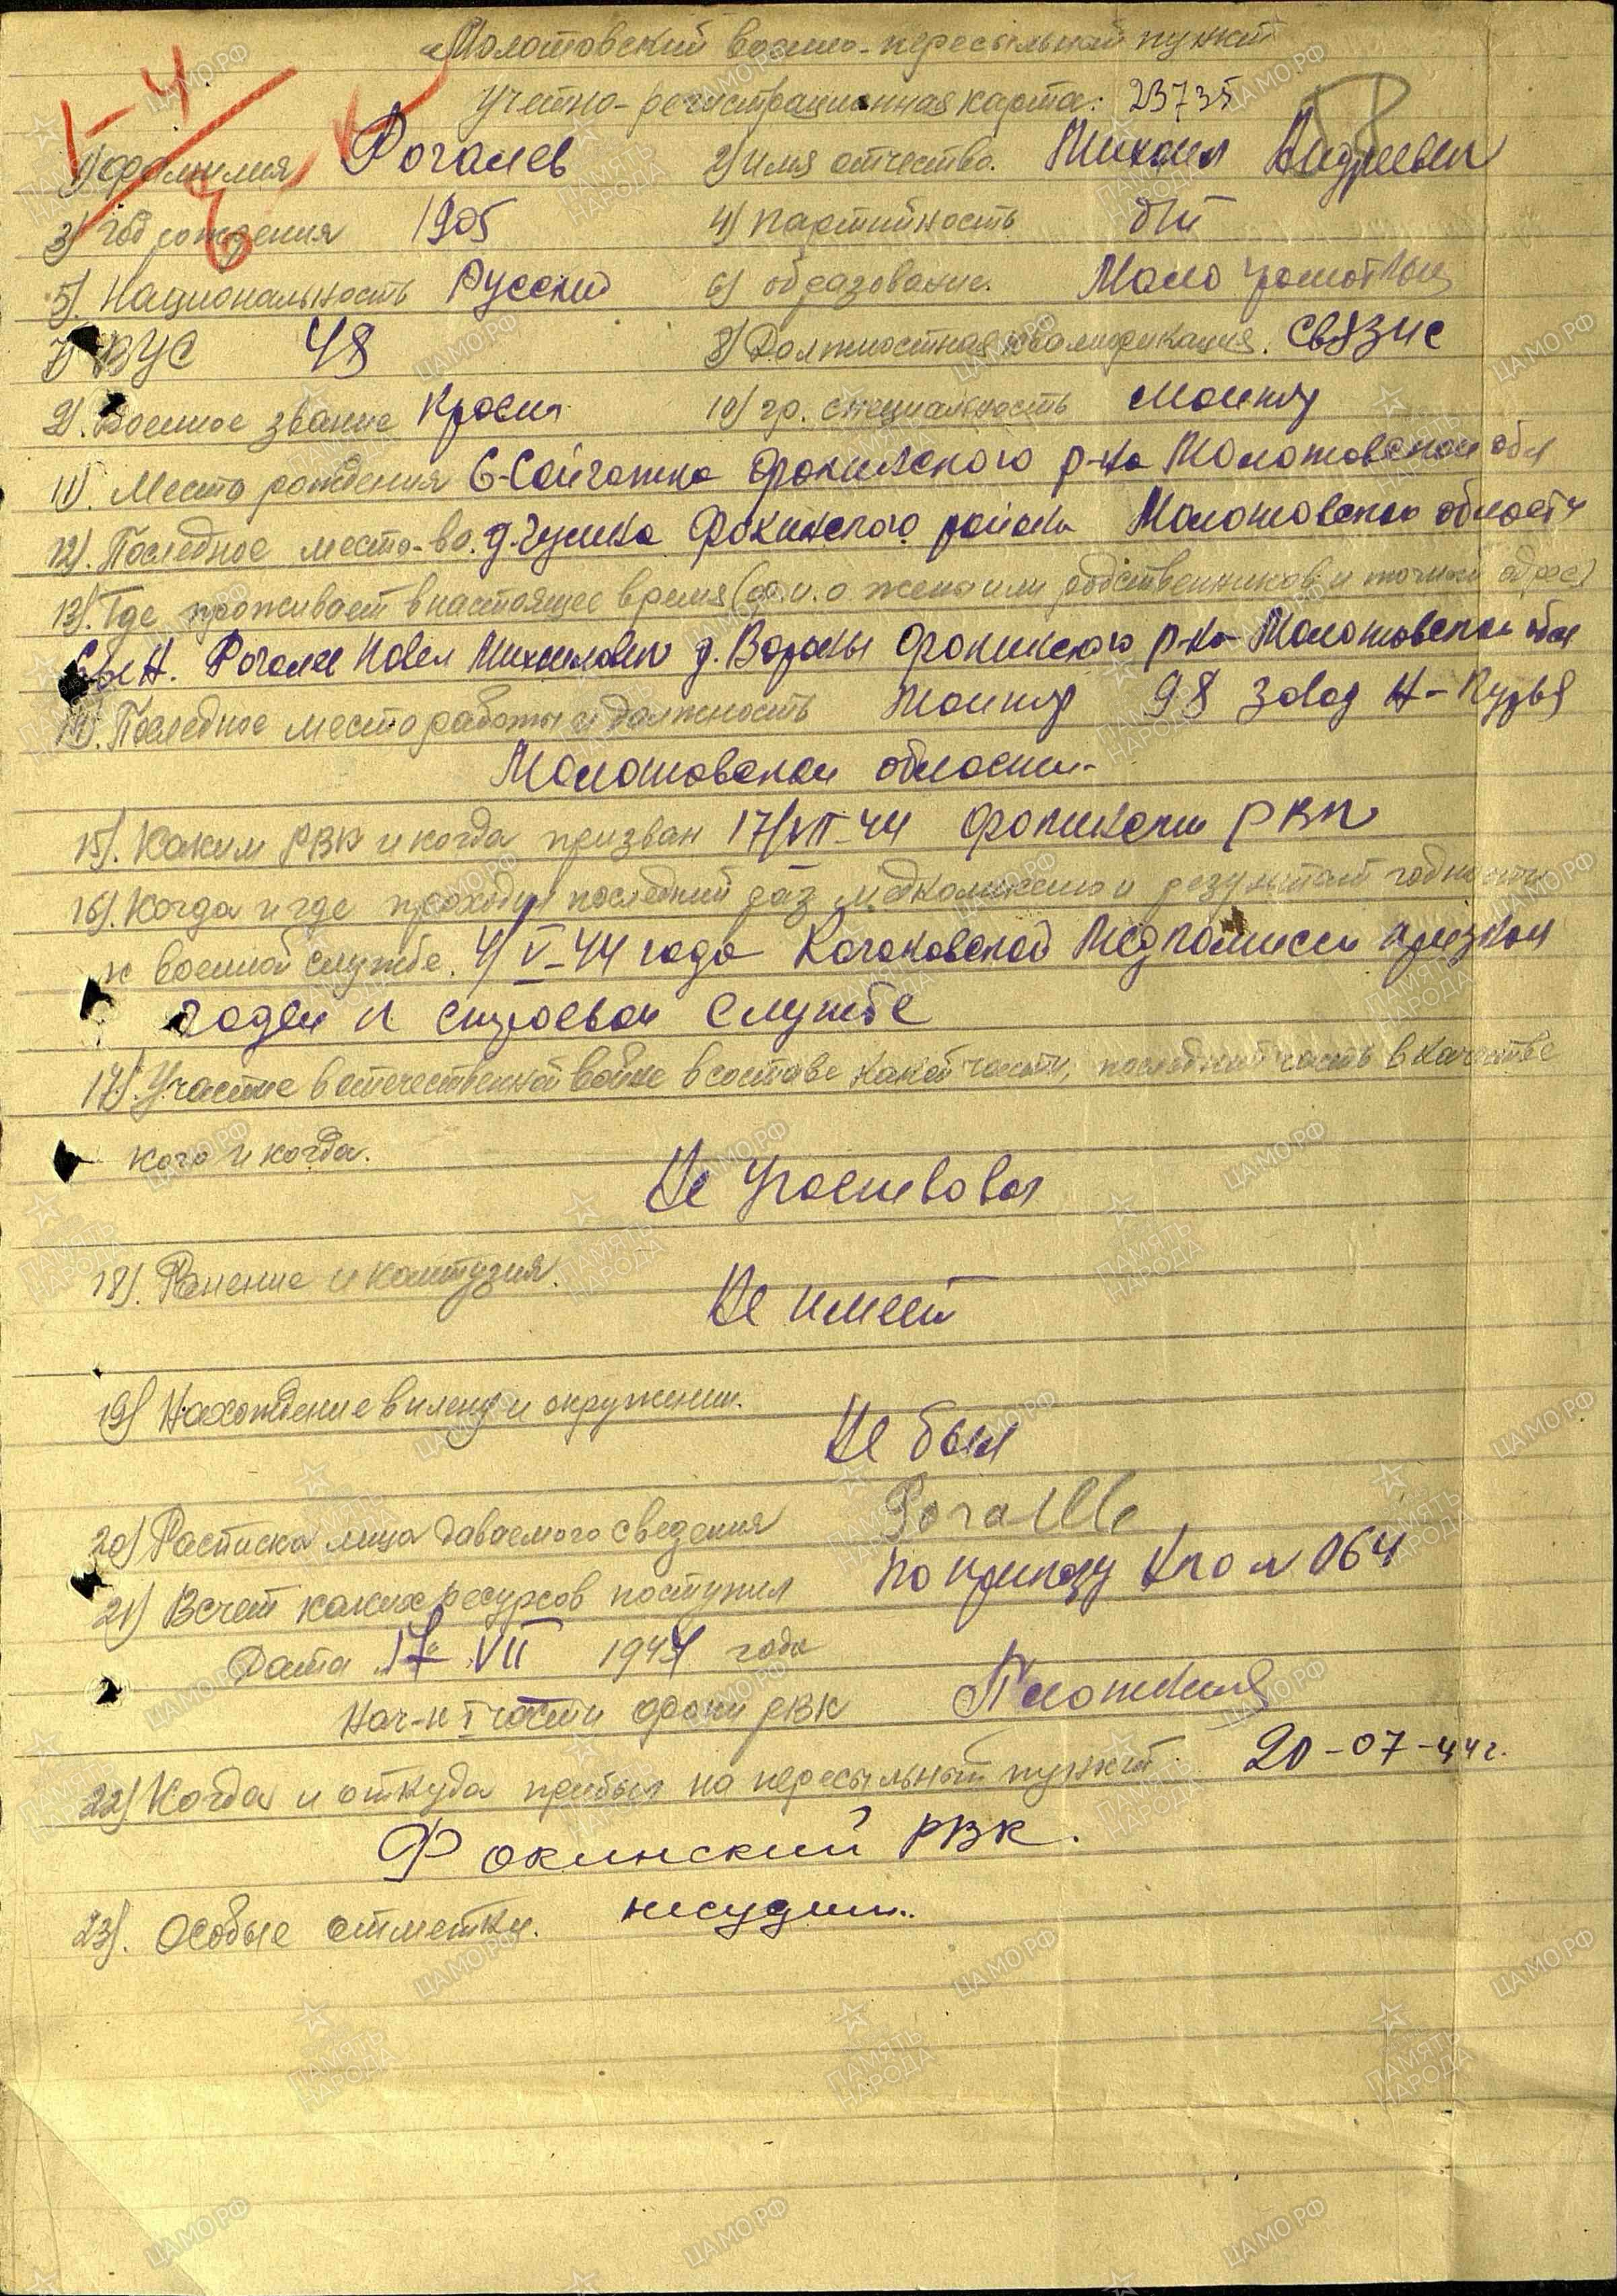 Молотовский военно-пересыльный пункт
Учетно-регистрационная карта: 23735
1) Фамилия Рогалев 2) Имя отчество. Михаил Андреевич
3) Год рождения 1905 4) Партийность б/п
5). Национальность Русский 6) образование. Мало грамотный
7) ВУС 48 8) Должностная квалификация. Связис
9). Военное звание Красн 10) гр. специальность Маляр
11). Место рождения С-Сайгатка Фокинского р-на Молотовской обл
12). Последнее место-во. д. Гумка Фокинского района Молотовской области
13). Где проживает в настоящее время (ф.и.о. жены или родственников и точный адрес)
Сын. Рогалев Павел Михайлович д. Фокинского р-на Молотовской обл
14). Последнее место работы и должность Маляр 98 завод Н-Курья
Молотовской области.
15). Каким РВК и когда призван 17/VII-44 Фокинским РВК
16). Когда и где проходил последний раз медкомиссию и результат годности
к военной службе. 4/V-44 года Медкомиссии признан
годен к строевой службе
17). Участие в отечественной войне в составе какой части, последний часть в качестве
кого и когда.
Не участвовал
18). Ранение и контузия.
Не имеет
19) Нахождение в плену и окружении.
Не был
20) Расписка лица даваемого сведения
21) В счет каких ресурсов поступил По приказу № 064
Дата 17 VII 1944 года
Нач-к I части Фоки РВК
22) Когда и откуда прибыл на пересыльный пункт. 20-07-44г.
Фокинский РВК.
23). Особые отметки. несудим.